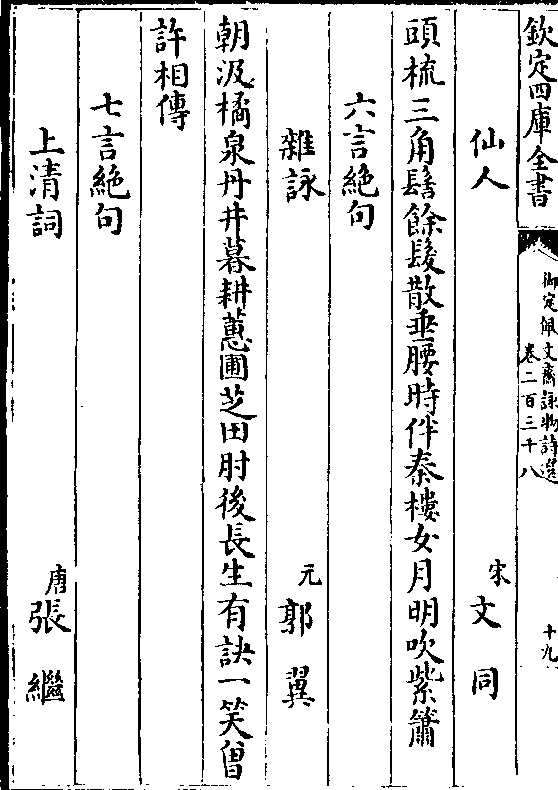 欽定四庫全書
御定佩文齋詠物詩選
卷二百三十八
十九
仙人
宋文同
頭梳三角髻餘髮散垂腰時伴秦樓女月明吹紫簫
六言絶句
雜詠
元郭翼
朝汲橘泉丹井暮耕蕙圃芝田肘後長生有訣一笑曾
許相傳
七言絶句
上清詞
唐張繼